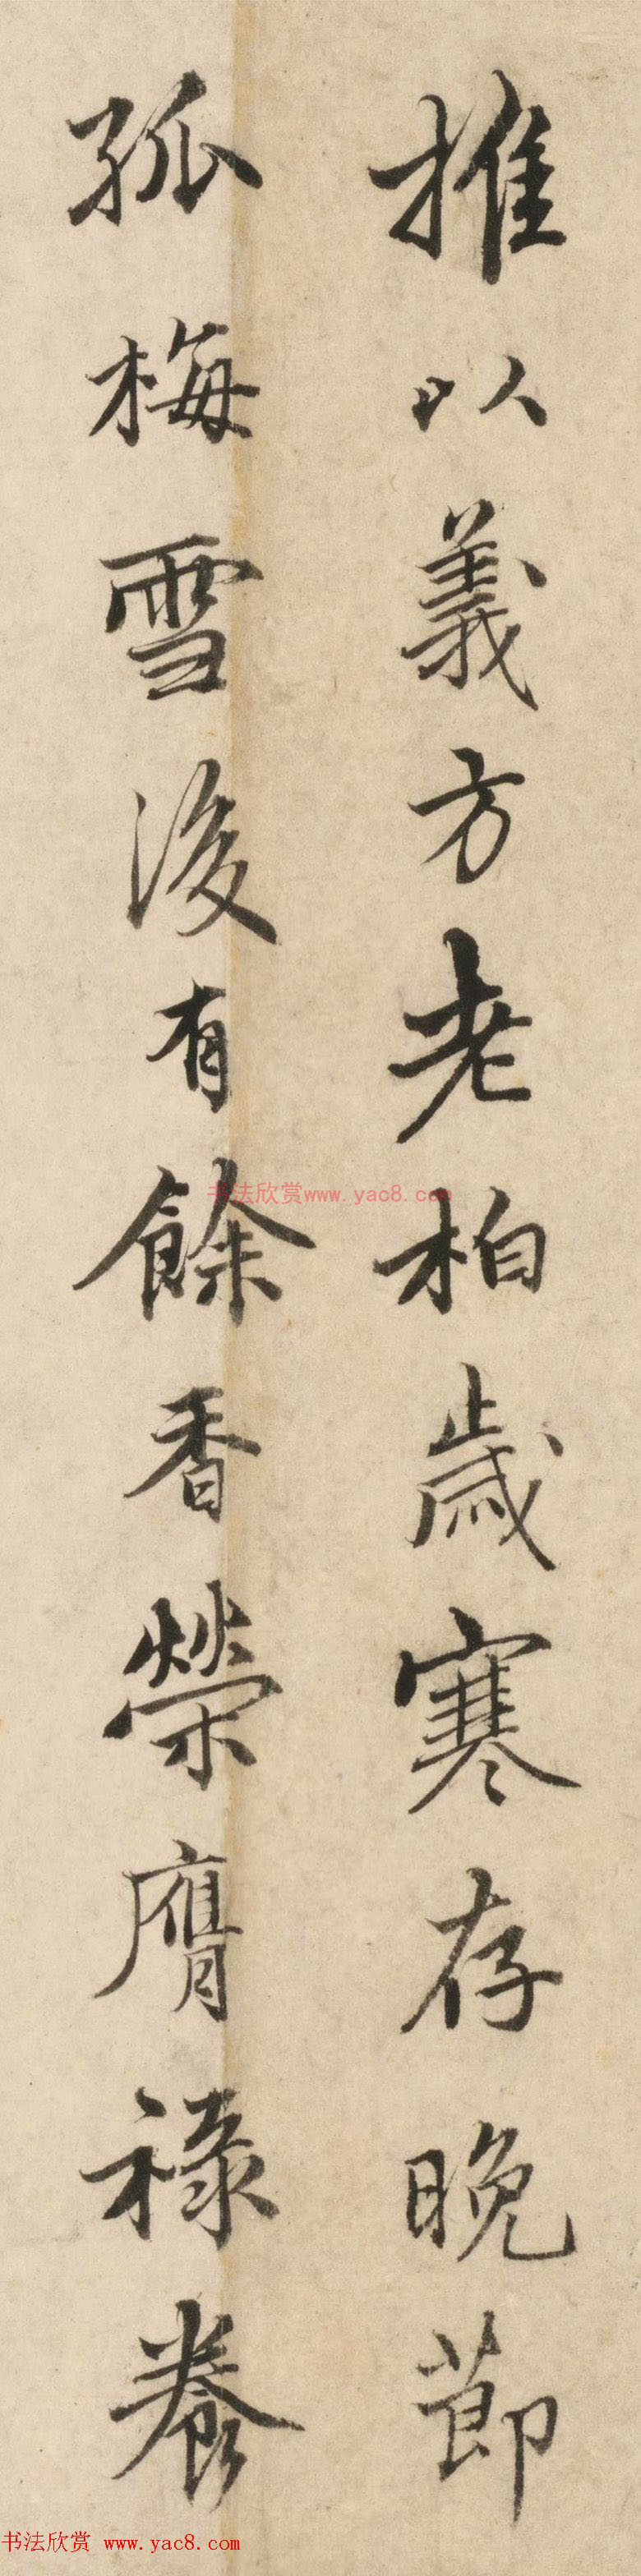 推以義方老柏歲寒存晚節
孤梅雪後有餘香榮膺祿養
书法欣赏www.yac8.com
书法欣赏 www.yac8.com